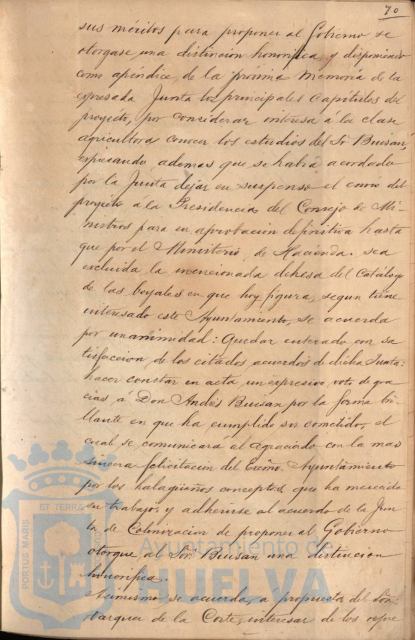 70
sus méritos para proponer al Gobierno se
otorgase una distinción honorífica, y disponiendo
como apéndice de la próxima Memoria de la
expresada Junta los principales Capítulos del
proyecto, por considerar interesa a la clase
agricultora conocer los estudios del Sr Buisan,
expresando ademas que se había acordado
por la Junta dejar en suspenso el envío del
proyecto a la Presidencia del Consejo de Mi-
nistros para su aprobación definitiva hasta
que por el Ministerio de Hacienda sea
excluida la mencionada dehesa del Catálogo
de las boyales en que hoy figura, segun tiene
interesado este Ayuntamiento, se acuerda
por unanimidad: Quedar enterado con sa
tisfaccion de los citados acuerdos de dicha Junta:
hacer constar en acta un expresivo voto de gra
cias á Don Andrés Buisan por la forma bri
llante en que ha cumplido su cometido, el
cual se comunicará al agraciado con la mas
sincera felicitacion del Excmo. Ayuntamiento
por los halagüeños conceptos que ha merecido
su trabajo, y adherirse al acuerdo de la Jun
ta de Colonizacion de proponer al Gobierno
otorgue al Sor. Buisan una distincion
honorífica.
Asimismo se acuerda, a propuesta del Sor.
Barquea de la Corte, interesar de los
PORTUS MARIS ET TERRAE
Ayuntamiento de
HUELVA